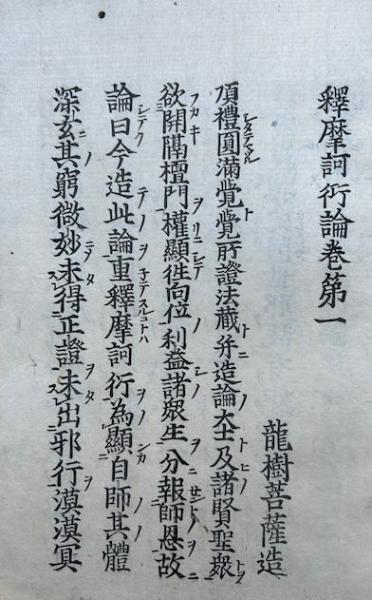 釋摩訶衍論卷第一
龍樹菩薩造
頂禮圓滿覺覺所證法藏并造論大士及諸賢聖衆
欲開隔檀門權顯徃向位利益諸衆生分報師恩故
論曰今造此論重釋摩訶衍為顯自師其體
深玄其窮微妙未得正證未出邪行漠漠冥